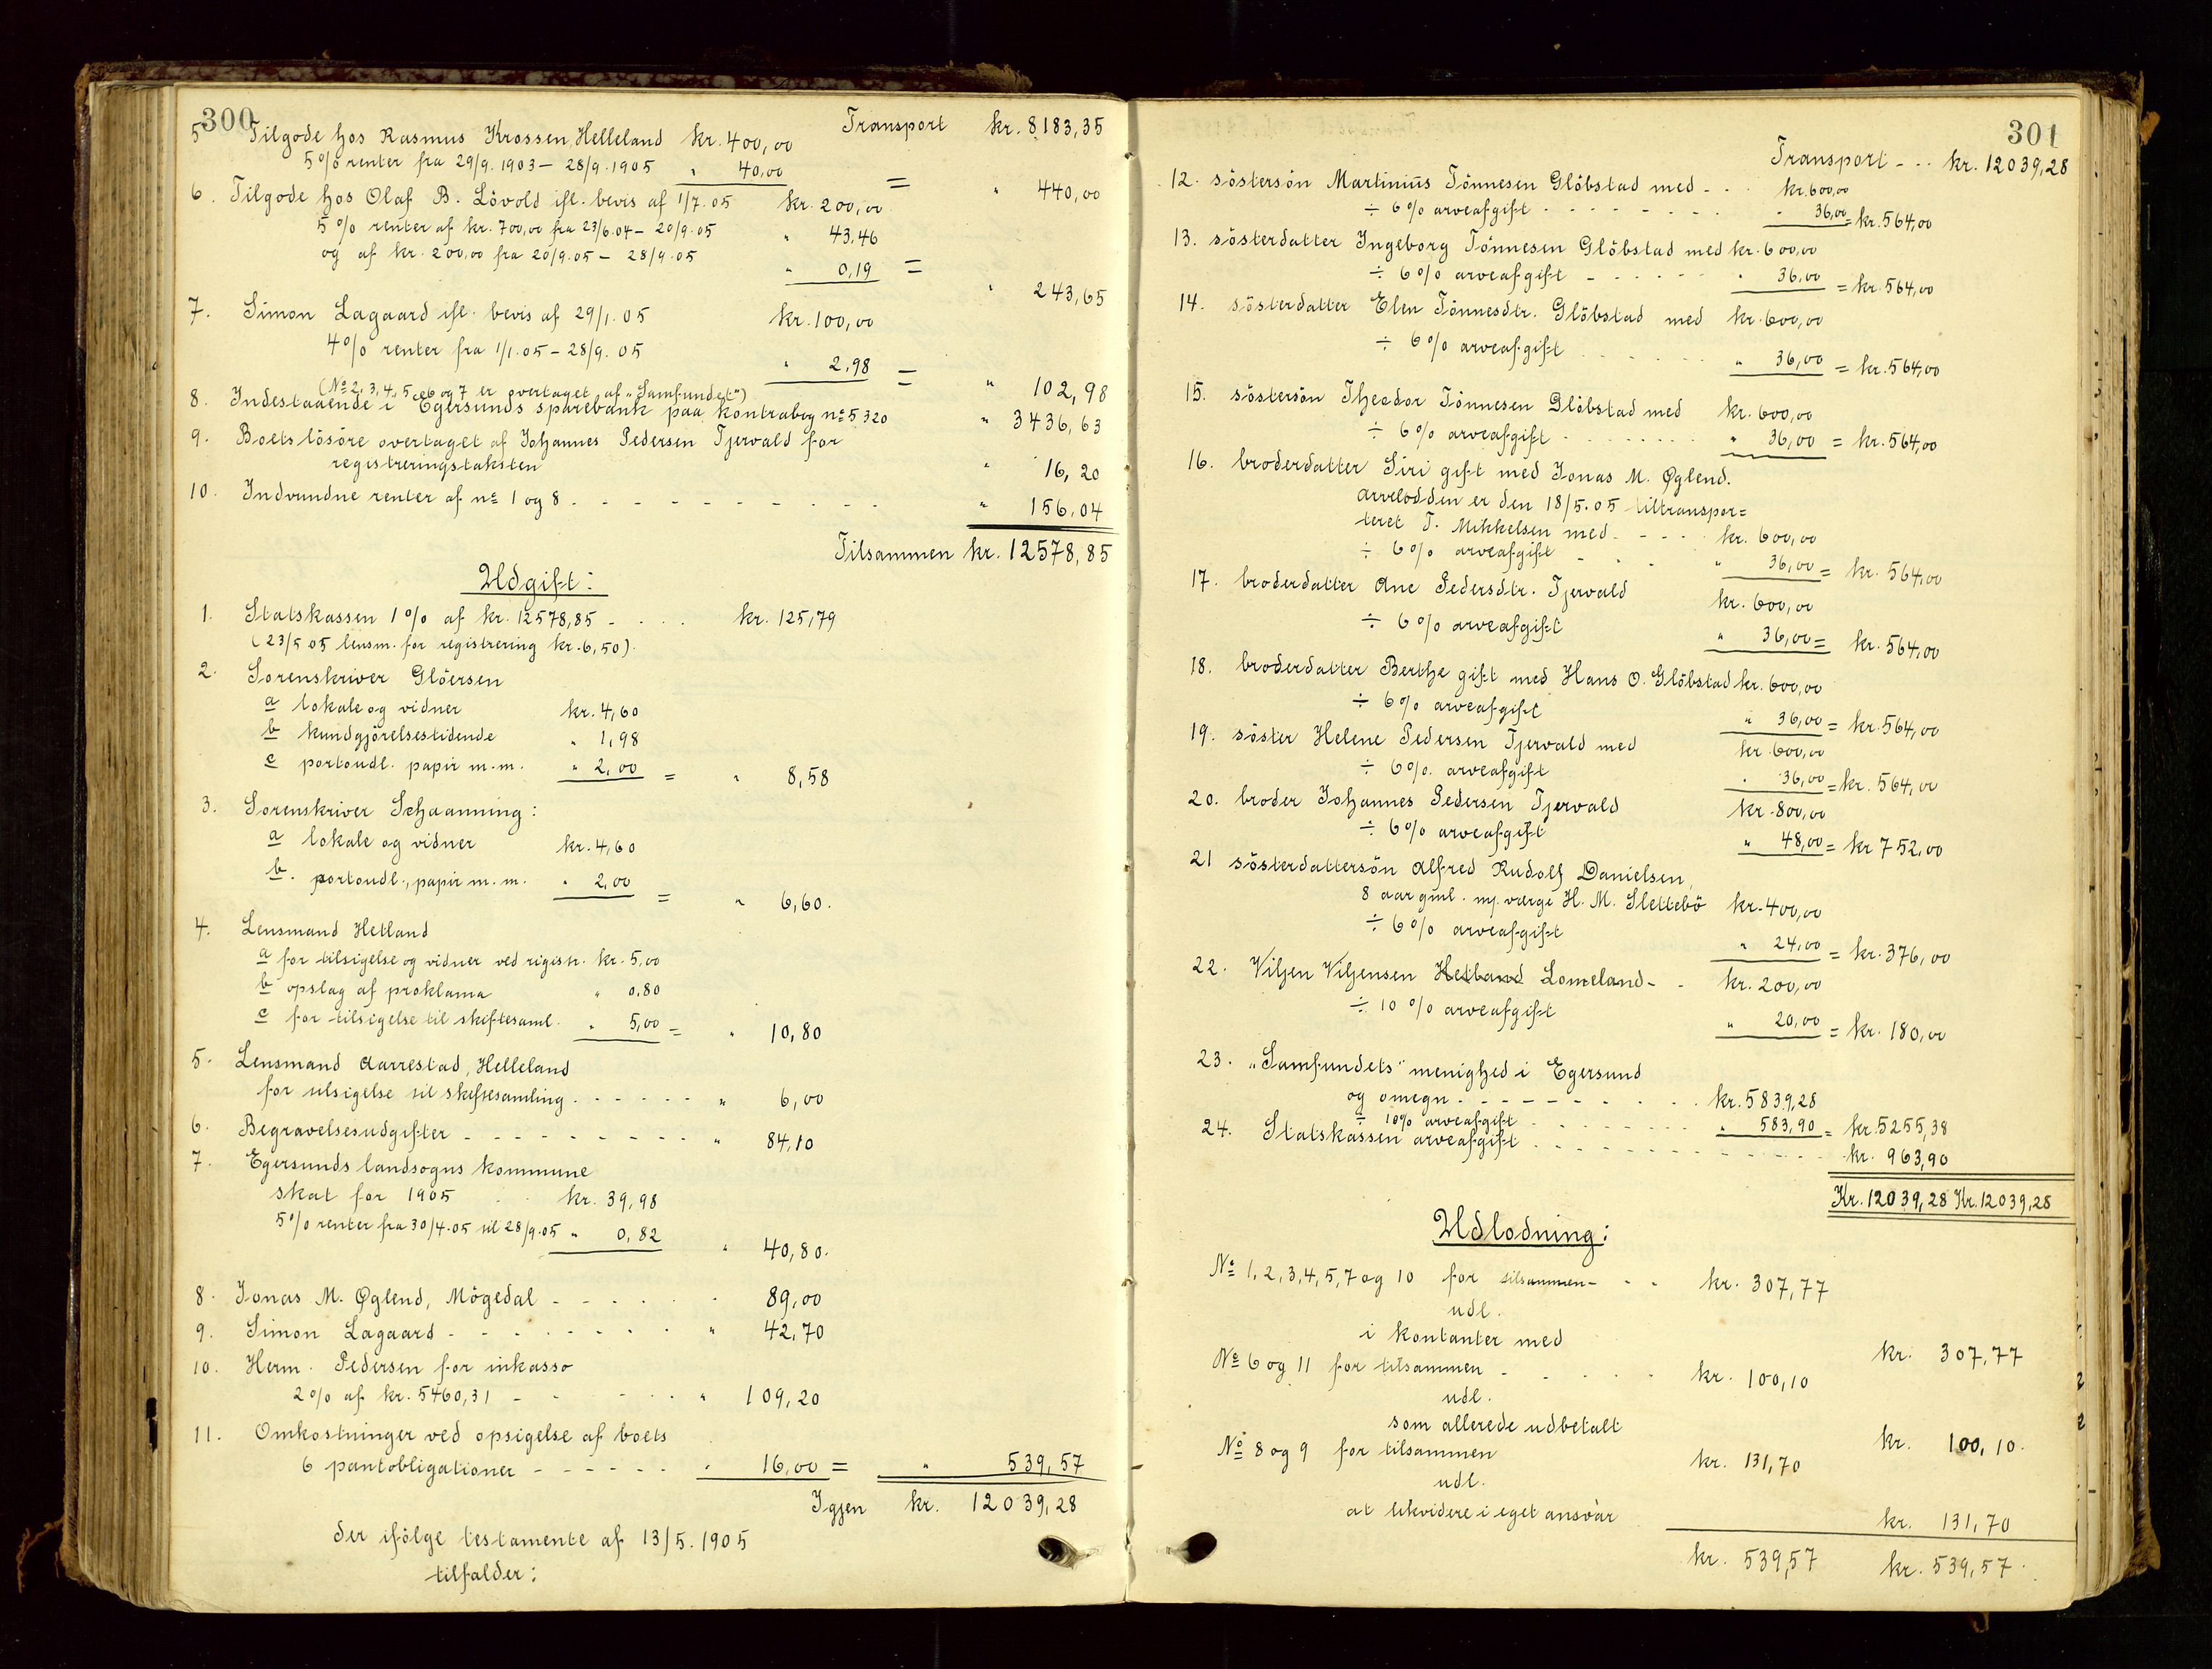 300
Transport kr. 8183,35
5 Tilgode hos Rasmus Krossen, Helleland kr. 400,00
5% renter fra 29/9. 1903 – 28/9. 1905 " 40,00 = " 440,00
6. Tilgode hos Olaf B. Lövold ifl. bevis af 1/7. 05 kr. 200,00
5% renter af kr. 700,00 fra 23/6.04 – 20/9.05 " 43,46
og af kr. 200,00 fra 20/9.05 – 28/9.05 " 0,19 = " 243,65
7. Simon Lagaard ifl. bevis af 29/1. 05 kr. 100,00
4% renter fra 1/1.05 – 28/9. 05 " 2,98 = " 102,98
(No 2, 3, 4, 5, 6 og 7 er overtaget af „Samfundet")
8. Indestaaende i Egersunds sparebank paa kontrabog no 5320 " 3436,63
9. Boets lösöre overtaget af Johannes Pedersen Tjervald for
registreringstaksten " 16,20
10. Indvundne renter af no 1 og 8 - - - - - - " 156,04
Tilsammen kr. 12578,85
Udgift:
1. Statskassen 1% af kr. 12578,85 - . . . kr. 125,79
(23/5 05 lensm. for registrering kr. 6,50).
2. Sorenskriver Glöersen
a lokale og vidner kr. 4,60
b kundgjörelsestidende " 1,98
c portoudl. papir m.m. " 2,00 = " 8,58
3. Sorenskriver Schaanning:
a lokale og vidner kr. 4,60
b. portoudl., papir m.m. " 2,00 = " 6,60.
4. Lensmand Hetland
a for tilsigelse og vidner ved registr. kr. 5,00
b opslag af proklama " 0,80
c for tilsigelse til skiftesaml. " 5,00 = " 10,80
5. Lensmand Aarrestad, Helleland
for tilsigelse til skiftesamling - - - - " 6,00
6. Begravelsesudgifter - - - - - - " 84,10
7. Egersunds landsogns kommune
skat for 1905 . . kr. 39,98
5% renter fra 30/4.05 til 28/9.05 " 0,82 " 40,80.
8. Jonas M. Øglend, Mögedal - - - - " 89,00
9. Simon Lagaard - - - - - - " 42,70
10. Herm. Pedersen for inkasso
2% af kr. 5460,31 - - - - " 109,20
11. Omkostninger ved opsigelse af boets
6 pantobligationer - - - - - " 16,00 = " 539,57
Igjen kr. 12039,28
der ifölge testamente af 13/5. 1905
tilfalder:
301
Transport - - - kr. 12039,28
12. söstersön Martinius Tönnesen Glöbstad med - - kr. 600,00
÷ 6% arveafgift - - - - - " 36,00 = kr. 564,00
13. sösterdatter Ingeborg Tönnesen Glöbstad med kr. 600,00
÷ 6% arveafgift - - - - - " 36,00 = kr. 564,00
14. sösterdatter Elen Tönnesdtr. Glöbstad med kr. 600,00
÷ 6% arveafgift . . . . " 36,00 = kr. 564,00
15. söstersön Theodor Tönnesen Glöbstad med kr. 600,00
÷ 6% arveafgift . . . . " 36,00 = kr. 564,00
16. broderdatter Siri gift med Jonas M. Øglend.
arvelodden er den 18/5.05 tiltranspor=
teret T. Mikkelsen med - - - kr. 600,00
÷ 6% arveafgift - - - " 36,00 = kr. 564,00
17. broderdatter Ane Pedersdtr. Tjervald kr. 600,00
÷ 6% arveafgift " 36,00 = kr. 564,00
18. broderdatter Berthe gift med Hans O. Glöbstad kr. 600,00
÷ 6% arveafgift " 36,00 = kr. 564,00
19. söster Helene Pedersen Tjervald med kr. 600,00
÷ 6%. arveafgift " 36,00 = kr. 564,00
20. broder Johannes Pedersen Tjervald kr. 800,00
÷ 6% arveafgift " 48,00 = kr 752,00
21 sösterdattersön Alfred Rudolf Danielsen,
8 aar gml. m/ værge H. M. Slettebö kr. 400,00
÷ 6% arveafgift " 24,00 = kr. 376,00
22. Viljen Viljensen Hetland Lomeland - - kr. 200,00
÷ 10% arveafgift " 20,00 = kr. 180,00
23. „Samfundets" menighed i Egersund
og omegn - - - - - - kr. 5839,28
÷ 10% arveafgift . . . . . " 583,90 = kr. 5255,38
24. Statskassen arveafgift . . . . . . kr. 963,90
Kr. 12039,28 Kr. 12039,28
Udlodning:
No 1, 2, 3, 4, 5, 7 og 10 for tilsammen - - - kr. 307,77
udl.
i kontanter med kr. 307,77
No 6 og 11 for tilsammen - - - - kr. 100,10
udl.
som allerede udbetalt kr. 100,10.
No 8 og 9 for tilsammen kr. 131,70
udl.
at likvidere i eget ansvar kr. 131,70
kr. 539,57 kr. 539,57.